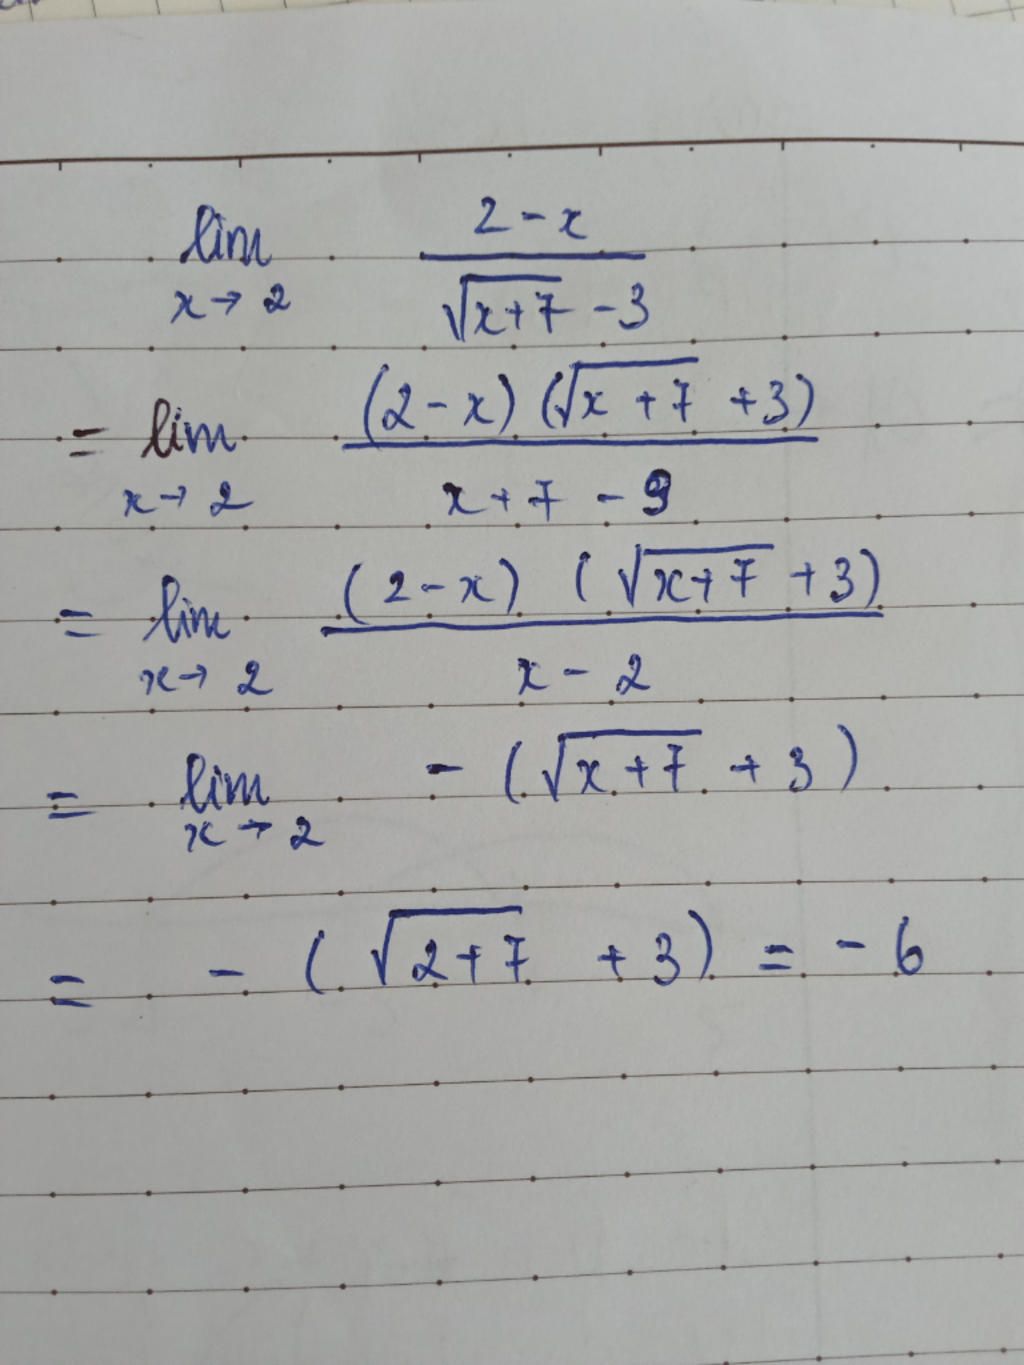 lim x→2 (2-x)/(√(x+7) -3)
= lim x→2 ((2-x) (√(x+7) +3))/(x+7 -9)
= lim x→2 ((2-x) (√(x+7) +3))/(x-2)
= lim x→2 -(√(x+7) +3)
= -(√(2+7) +3) = -6